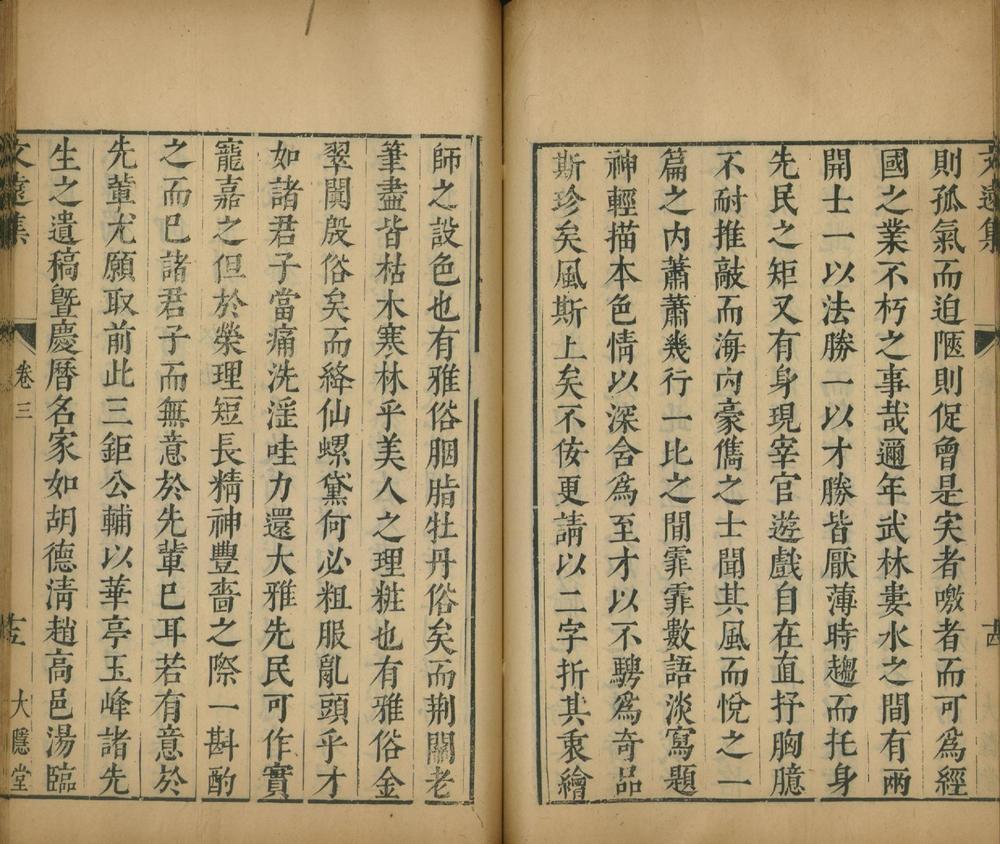 文遠集
十四
則孤氣而迫陿則促會是穾者噭者而可爲經
國之業不朽之事哉邇年武林婁水之間有兩
開士一以法勝一以才勝皆厭薄時趨而托身
先民之矩又有身現宰官遊戲自在直抒胸臆
不耐推敲而海內豪儁之士聞其風而悅之一
篇之內蕭蕭幾行一比之間霏霏數語淡寫題
神輕描本色情以深舍爲至才以不騁爲奇品
斯珍矣風斯上矣不佞更請以二字折其衷繪
師之設色也有雅俗胭脂牡丹俗矣而荆關老
筆盡皆枯木寒林乎美人之理粧也有雅俗金
翠闐殷俗矣而絳仙螺黛何必粗服亂頭乎才
如諸君子當痛洗淫哇力還大雅先民可作實
寵嘉之但於榮理短長精神豐嗇之際一斟酌
之而已諸君子而無意於先軰已耳若有意於
先軰尤願取前此三鉅公輔以華亭玉峰諸先
生之遺稿曁慶曆名家如胡德淸趙高邑湯臨
文遠集
卷三
十五
大隱堂